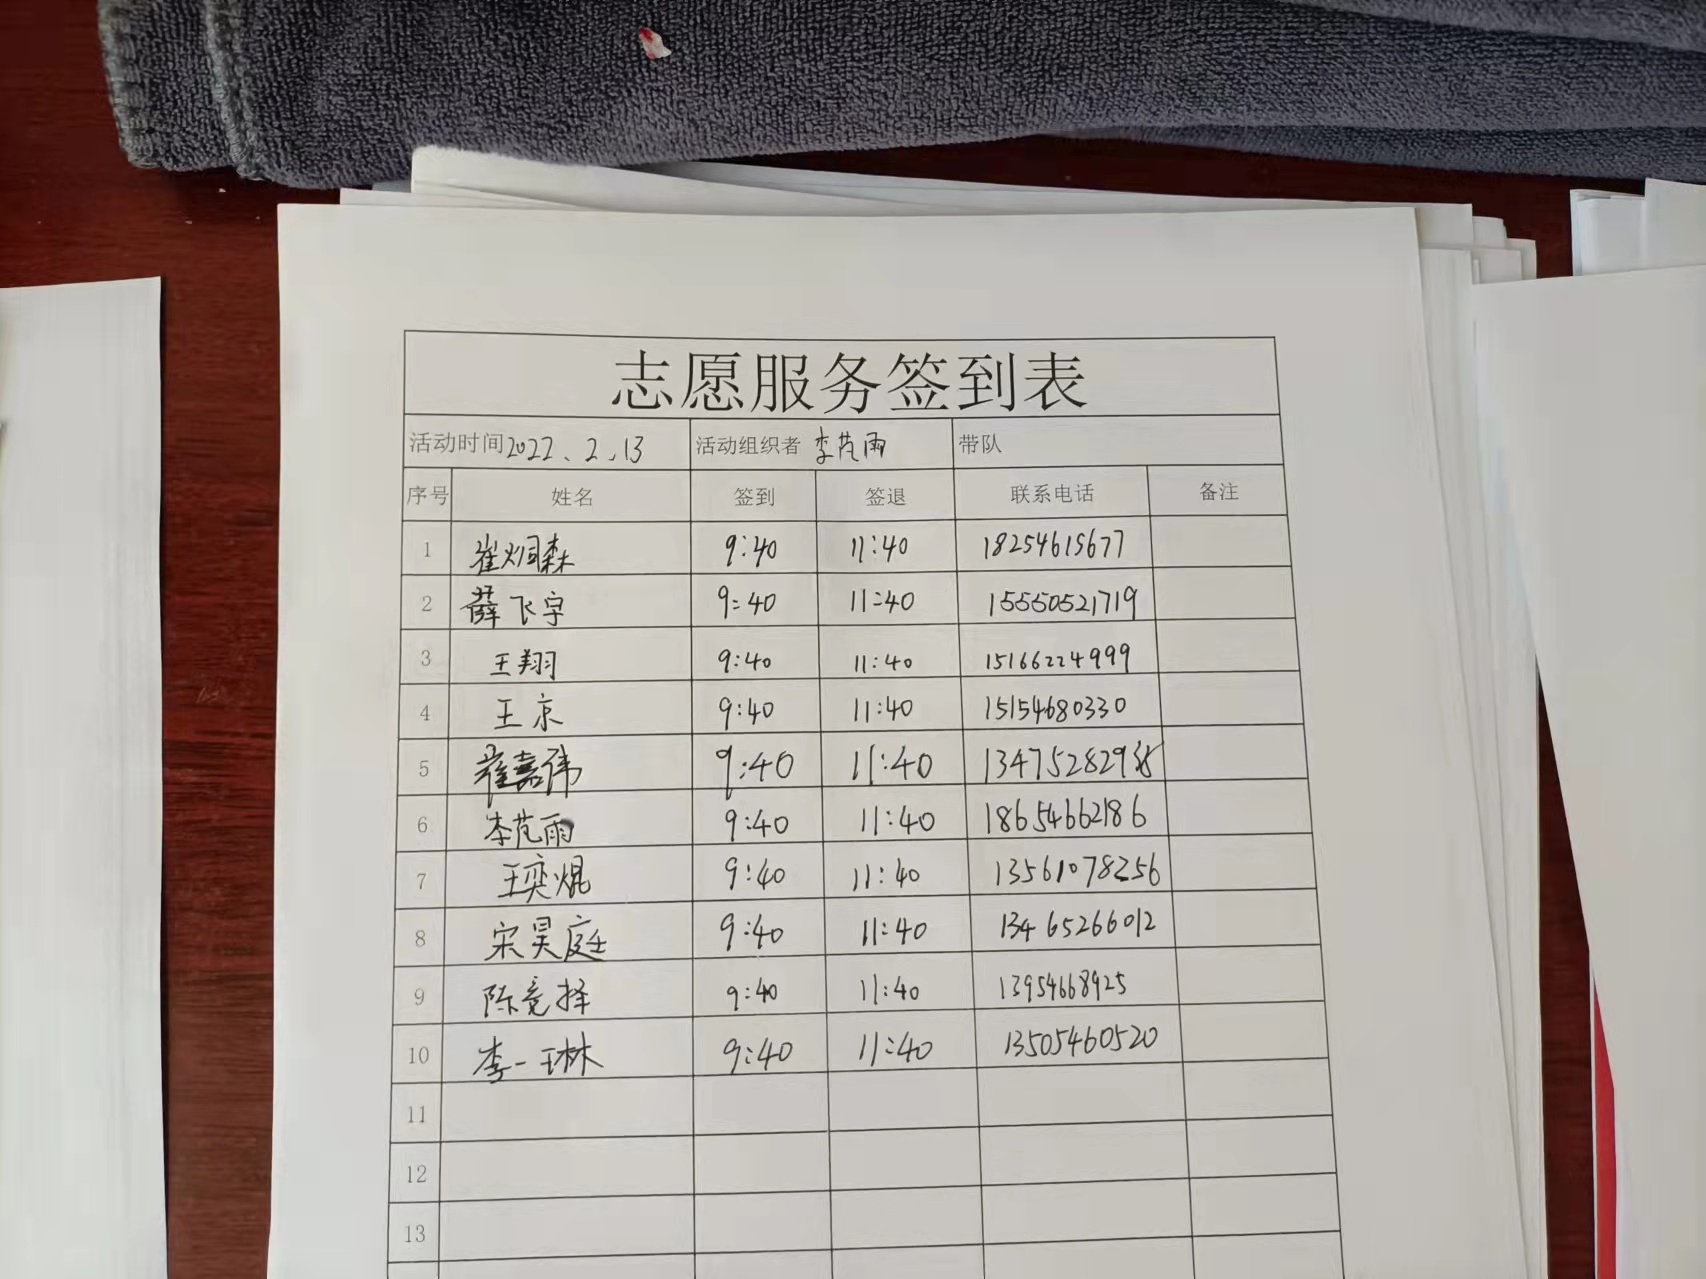 志愿服务签到表
活动时间 2022、2、13 活动组织者 李范雨 带队
序号 姓名 签到 签退 联系电话 备注
1 崔炯森 9:40 11:40 18254615677
2 薛飞宇 9:40 11:40 15550521719
3 王翔 9:40 11:40 15166224999
4 王京 9:40 11:40 15154680330
5 崔嘉伟 9:40 11:40
6 李范雨 9:40 11:40 18654662186
7 王奕焜 9:40 11:40 13561078256
8 宋昊庭 9:40 11:40 13465266012
9 陈竟择 9:40 11:40 13954668925
10 李一琳 9:40 11:40 13505460520
11
12
13